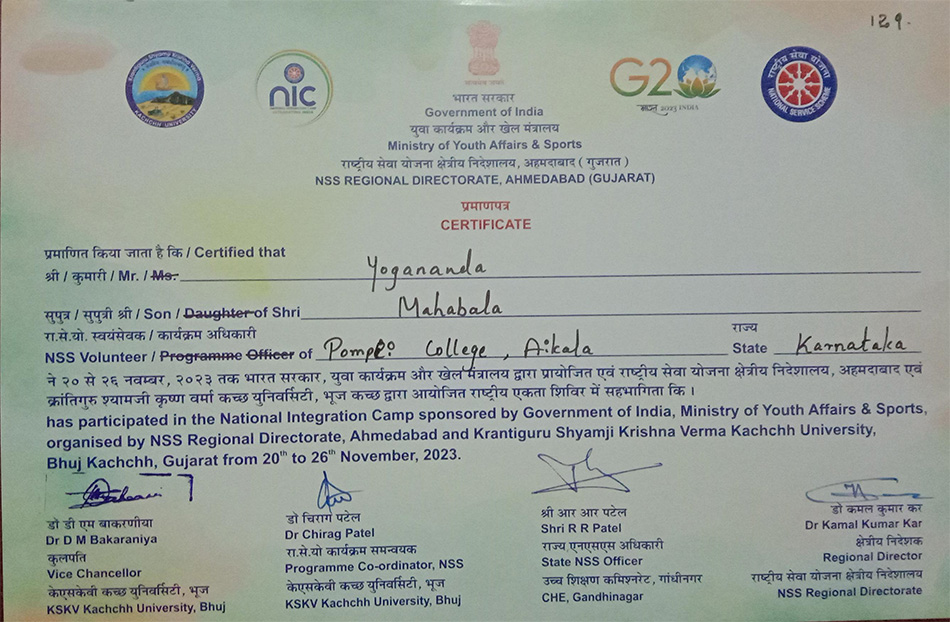 129.
nic
G20
भारत 2023 INDIA
राष्ट्रीय सेवा योजना
NATIONAL SERVICE SCHEME
भारत सरकार
Government of India
युवा कार्यक्रम और खेल मंत्रालय
Ministry of Youth Affairs & Sports
राष्ट्रीय सेवा योजना क्षेत्रीय निदेशालय, अहमदाबाद ( गुजरात )
NSS REGIONAL DIRECTORATE, AHMEDABAD (GUJARAT)
प्रमाणपत्र
CERTIFICATE
प्रमाणित किया जाता है कि / Certified that
श्री / कुमारी / Mr. / Ms. Yogananda
सुपुत्र / सुपुत्री श्री / Son / Daughter of Shri Mahabala
रा.से.यो. स्वयंसेवक / कार्यक्रम अधिकारी राज्य
NSS Volunteer / Programme Officer of Pompei College, Aikala State Karnataka
ने २० से २६ नवम्बर, २०२३ तक भारत सरकार, युवा कार्यक्रम और खेल मंत्रालय द्वारा प्रायोजित एवं राष्ट्रीय सेवा योजना क्षेत्रीय निदेशालय, अहमदाबाद एवं
क्रांतिगुरु श्यामजी कृष्ण वर्मा कच्छ युनिवर्सिटी, भूज कच्छ द्वारा आयोजित राष्ट्रीय एकता शिविर में सहभागिता कि ।
has participated in the National Integration Camp sponsored by Government of India, Ministry of Youth Affairs & Sports,
organised by NSS Regional Directorate, Ahmedabad and Krantiguru Shyamji Krishna Verma Kachchh University,
Bhuj Kachchh, Gujarat from 20th to 26th November, 2023.
डो डी एम बाकरणीया
Dr D M Bakaraniya
कुलपति
Vice Chancellor
केएसकेवी कच्छ युनिवर्सिटी, भूज
KSKV Kachchh University, Bhuj
डो चिराग पटेल
Dr Chirag Patel
रा.से.यो कार्यक्रम समन्वयक
Programme Co-ordinator, NSS
केएसकेवी कच्छ युनिवर्सिटी, भूज
KSKV Kachchh University, Bhuj
श्री आर आर पटेल
Shri R R Patel
राज्य एनएसएस अधिकारी
State NSS Officer
उच्च शिक्षण कमिश्नरेट, गांधीनगर
CHE, Gandhinagar
डो कमल कुमार कर
Dr Kamal Kumar Kar
क्षेत्रीय निदेशक
Regional Director
राष्ट्रीय सेवा योजना क्षेत्रीय निदेशालय
NSS Regional Directorate